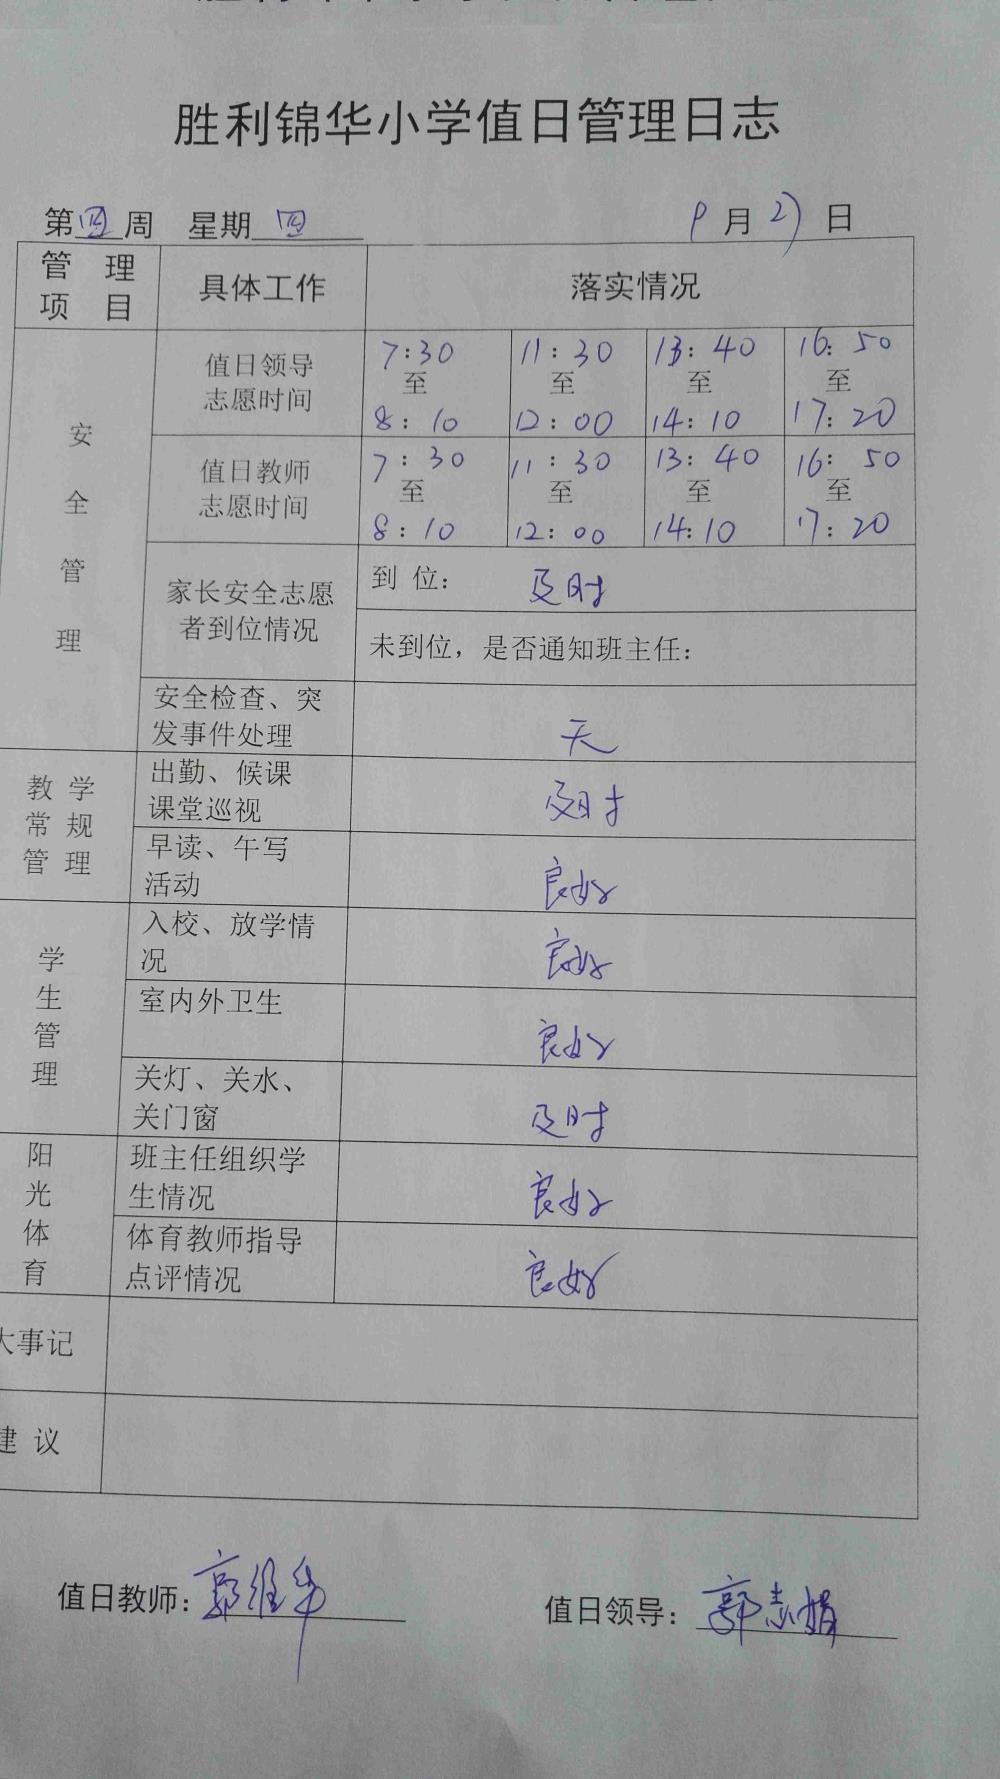 胜利锦华小学值日管理日志
第四周 星期四 9月27日
管理项目 具体工作 落实情况
安全管理
值日领导志愿时间
7:30至8:10 11:30至12:00 13:40至14:10 16:50至17:20
值日教师志愿时间
7:30至8:10 11:30至12:00 13:40至14:10 16:50至17:20
家长安全志愿者到位情况
到位: 及时
未到位,是否通知班主任:
安全检查、突发事件处理 无
教学常规管理
出勤、候课课堂巡视 及时
早读、午写活动 良好
学生管理
入校、放学情况 良好
室内外卫生 良好
关灯、关水、关门窗 及时
阳光体育
班主任组织学生情况 良好
体育教师指导点评情况 良好
大事记
建议
值日教师:郭维华 值日领导:郭志娟